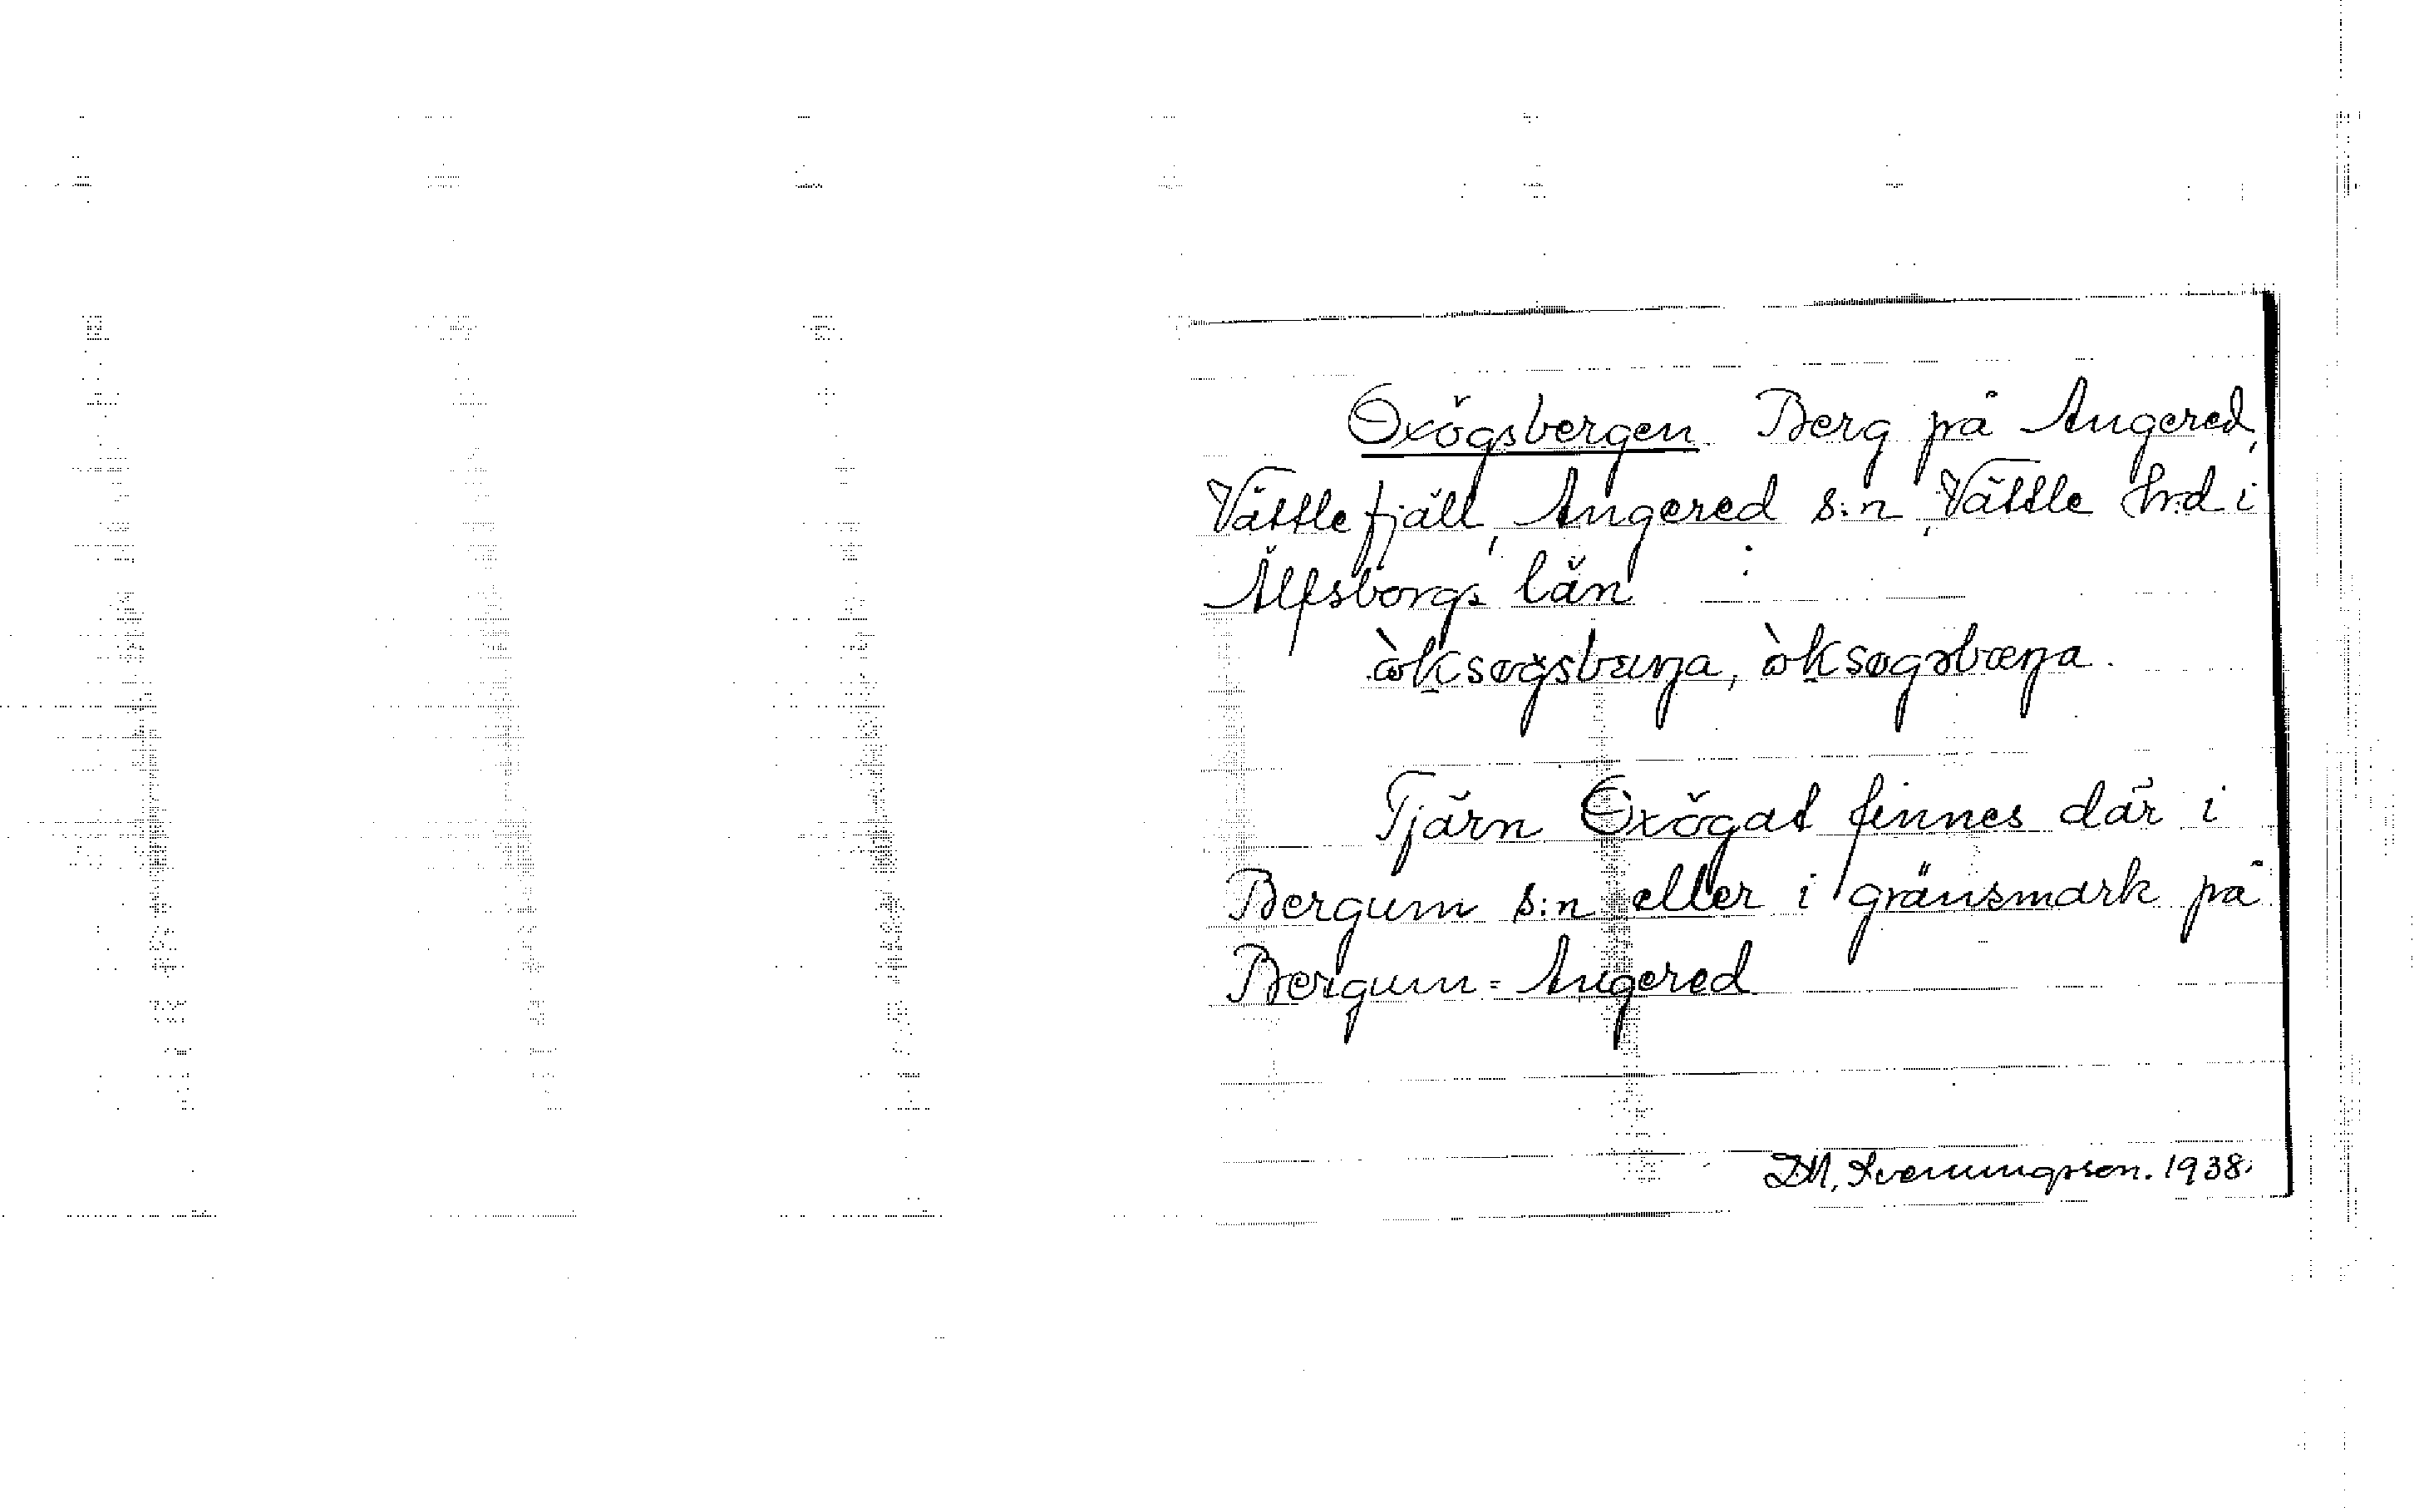 Oxögsbergen Berg på Angered,
Vättlefjäll, Angered s:n, Vättle hrd i
Älfsborgs län
òksøgsbæŋa, òksøgsbæŋa.
Tjärn Oxögat finnes där i
Bergum s:n eller i gränsmark på
Bergum=Angered
D.M. Svenungsson. 1938.